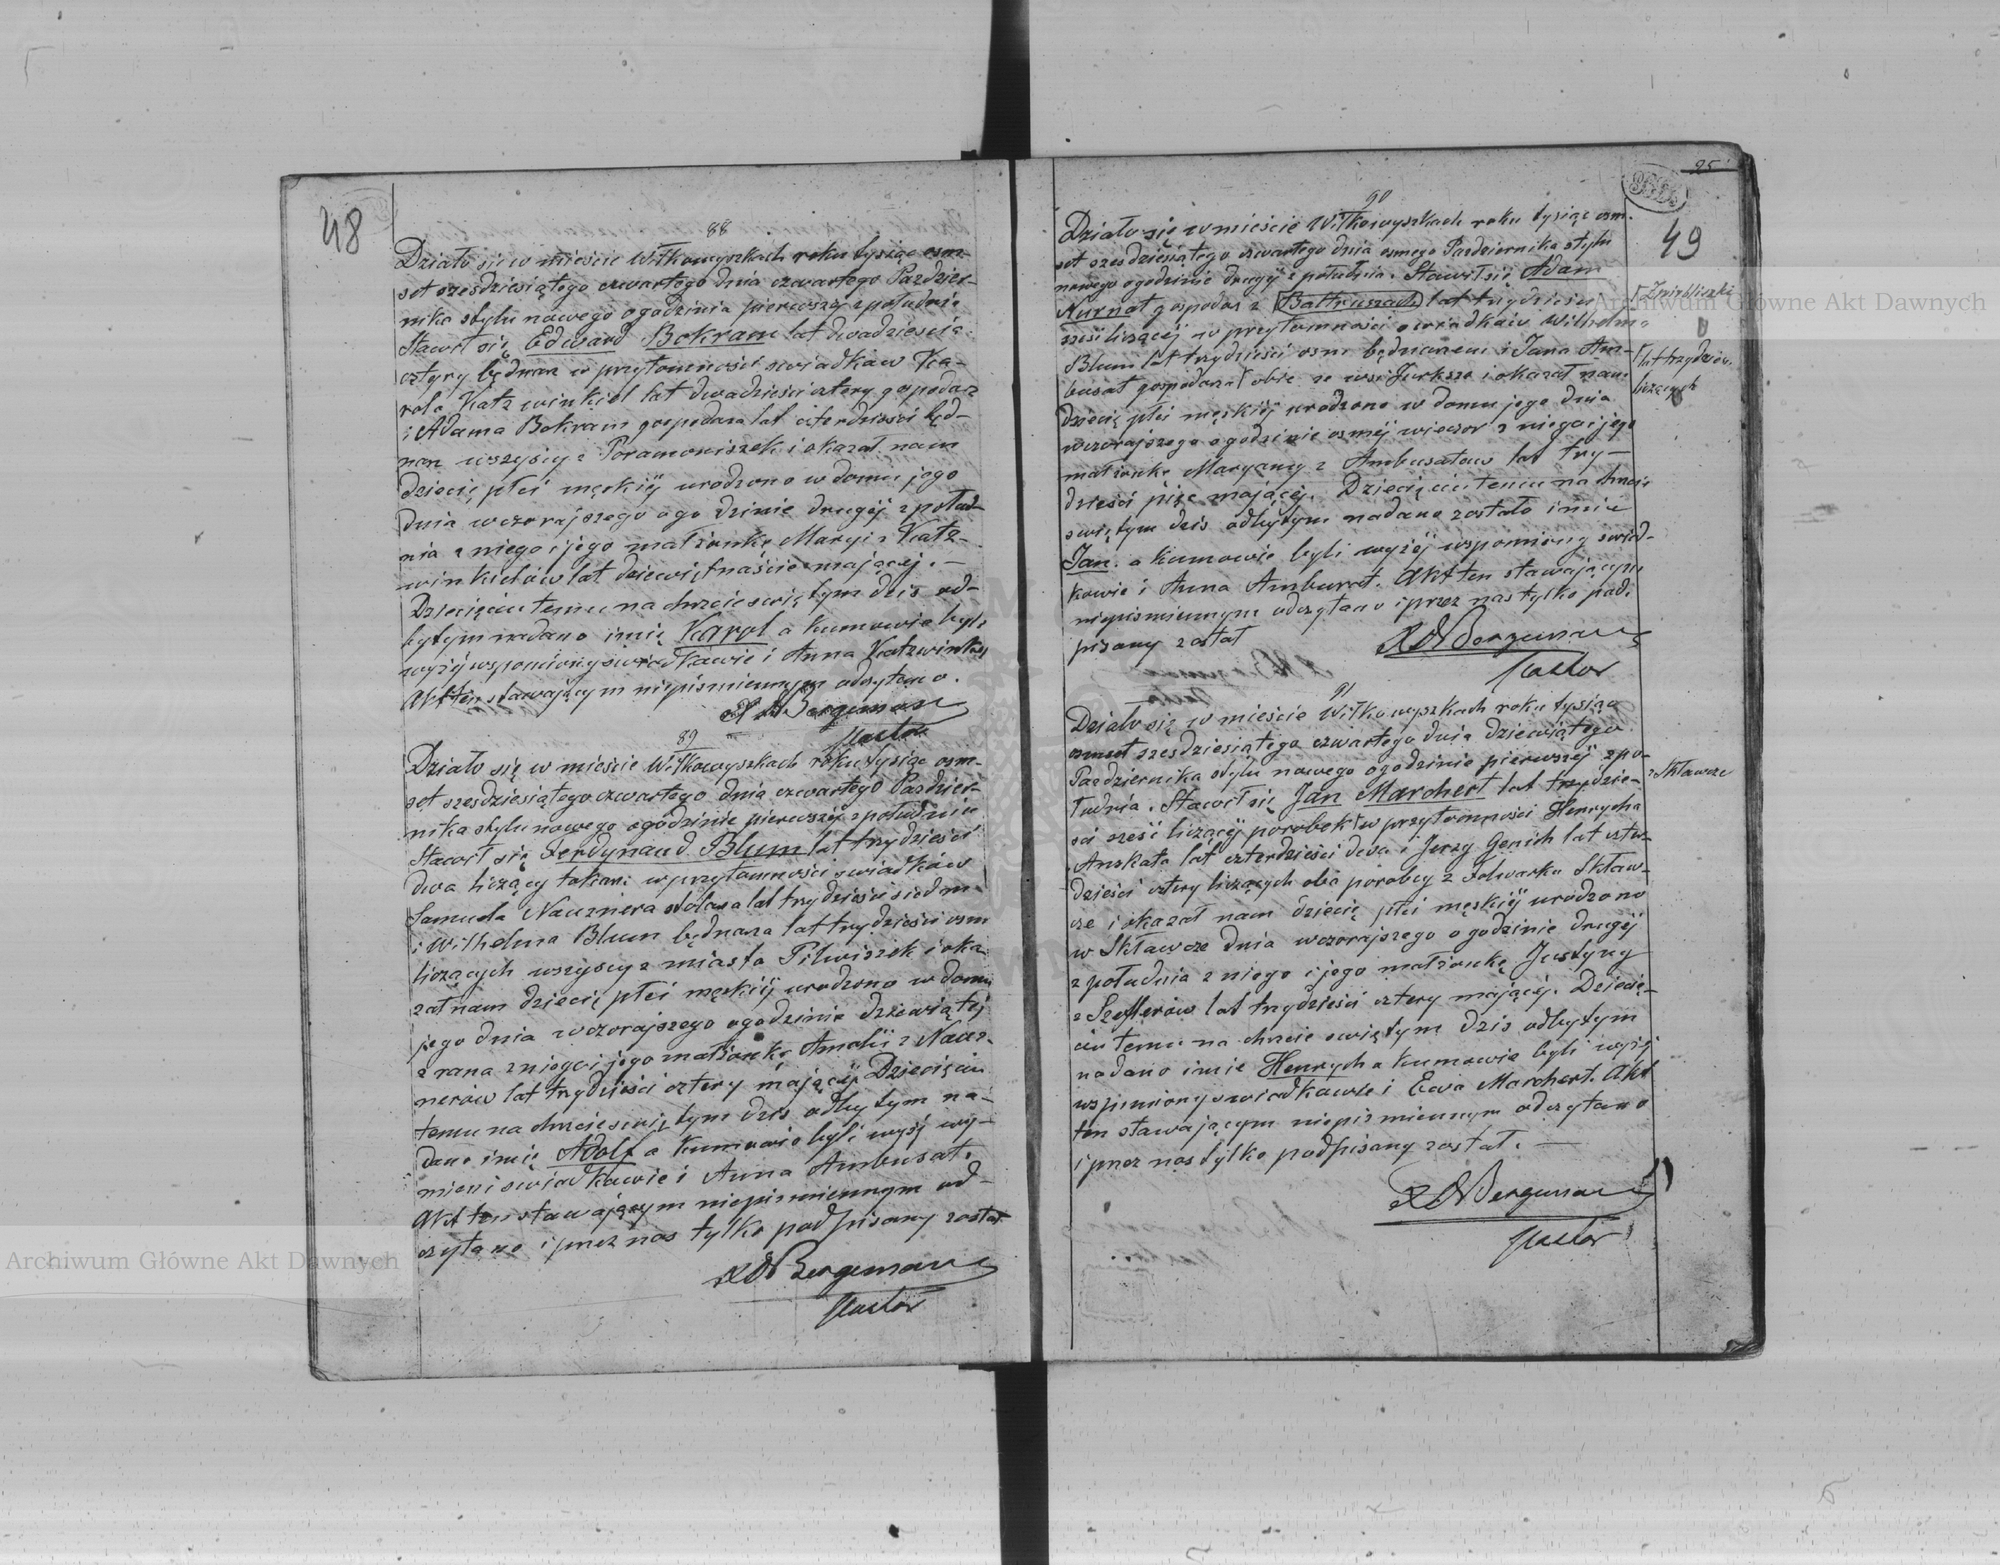 48
88
Działo się w mieście Wiłkowyszkach roku tysiąc osm-
set szesdziesiątego czwartego dnia czwartego Paździer-
nika stylu nowego o godzinie pierwszej z południa
Stawił się Edward Bokram lat dwadzieścia
cztyry będnarz w przytomności swiadkow Ka-
rola Katzwinkiel lat dwadzieści cztery gospodarz
i Adama Bokram gospodarza lat czterdzieści będ-
narz wszyscy z Poramoniszek i okazał nam
dziecię płci męskiéj urodzone w domu jego
dnia wczorajszego o godzinie drugéj z połud-
nia z niego i jego małżonki Maryi z Katz-
winkielów lat dziewiętnaście mającéj. —
Dziecięciu temu na chrzcie świętym dziś od-
bytym nadano imię Karol a kumowie byli
wyżéj wspomiony swiadkowie i Anna Katzwinkel
Akt ten stawającym niepismiennym odczytano.
Bergeman
Pastor
89
Działo się w mieście Wiłkowyszkach roku tysiąc osm-
set szesdziesiątego czwartego dnia czwartego Paździer-
nika stylu nowego o godzinie pierwszéj z południa
Stawił się Ferdynand Blum lat trzydzieści
dwa liczący tokarz w przytomności swiadków
Samuela Nauznera stolarza lat trzydzieści siedm
i Wilhelma Blum będnarza lat trzydzieści osm
liczących wszyscy z miasta Pilwiszek i oka-
zał nam dziecię płci męskiéj urodzone w domu
jego dnia wczorajszego o godzinie dziewiątéj
z rana z niego i jego małżonki Amalii z Nauz-
nerów lat trzydzieści cztery mającéj Dziecięciu
temu na chrzcie świętym dziś odbytym na-
dano imię Adolf a kumowie byli wyżéj wy-
mieni swiadkowie i Anna Ambusat.
Akt ten stawającym niepismiennym od-
czytano i przez nas tylko podpisany został
Bergeman
Pastor
25
49
90
Działo się w mieście Wiłkowyszkach roku tysiąc osm-
set szesdziesiątego czwartego dnia osmego Października stylu
nowego o godzinie drugéj z południa. Stawił się Adam
Nurnat gospodarz z Bathuszach lat trzydzieści
sześć liczącéj w przytomności swiadków Wilhelma
Blum lat trzydzieści osm będnarzem i Jana Am-
busat gospodarza obie ze wsi Jurksze i okazał nam
dziecię płci męskiéj urodzone w domu jego dnia
wczorajszego o godzinie osméj wieczor z niego i jego
małżonki Maryanny z Ambusatow lat try-
dzieści pięc mającéj. Dziecięciu temu na chrzcie
swiętym dzis odbytym nadano zostało imie
Jan. a kumowie byli wyżéj wspomiony swiad-
kowie i Anna Ambusat. Akt ten stawającym
niepismiennym odczytano i przez nas tylko pod-
pisany został
Bergeman
Pastor
lat trzydzieści
liczących
91
Działo się w mieście Wiłkowyszkach roku tysiąc
osmset szesdziesiątego czwartego dnia dziewiątego
Października stylu nowego o godzinie pierwszéj z po-
łudnia. Stawił się Jan Marchert lat trzydzie-
sci sześć liczącéj porobek w przytomności Henrycha
Anskata lat czterdzieści dwa i Jerzy Genich lat czter-
dzieści cztery liczących obie porobcy z Folwarku Skław-
cze i okazał nam dziecię płci męskiéj urodzone
w Skławcze dnia wczorajszego o godzinie drugéj
z południa z niego i jego małżonkę Justyny
z Szefflerów lat trzydzieści cztery mającéj. Dziecię-
ciu temu na chrzcie świętym dzis odbytym
nadano imie Henrych a kumowie byli wyżéj
wspomiony swiadkowie i Ewa Marchert. Akt
ten stawającym niepismiennym odczytano
i przez nas tylko podpisany został. —
Bergeman
Pastor
z Skławcze
Archiwum Główne Akt Dawnych
Archiwum Główne Akt Dawnych